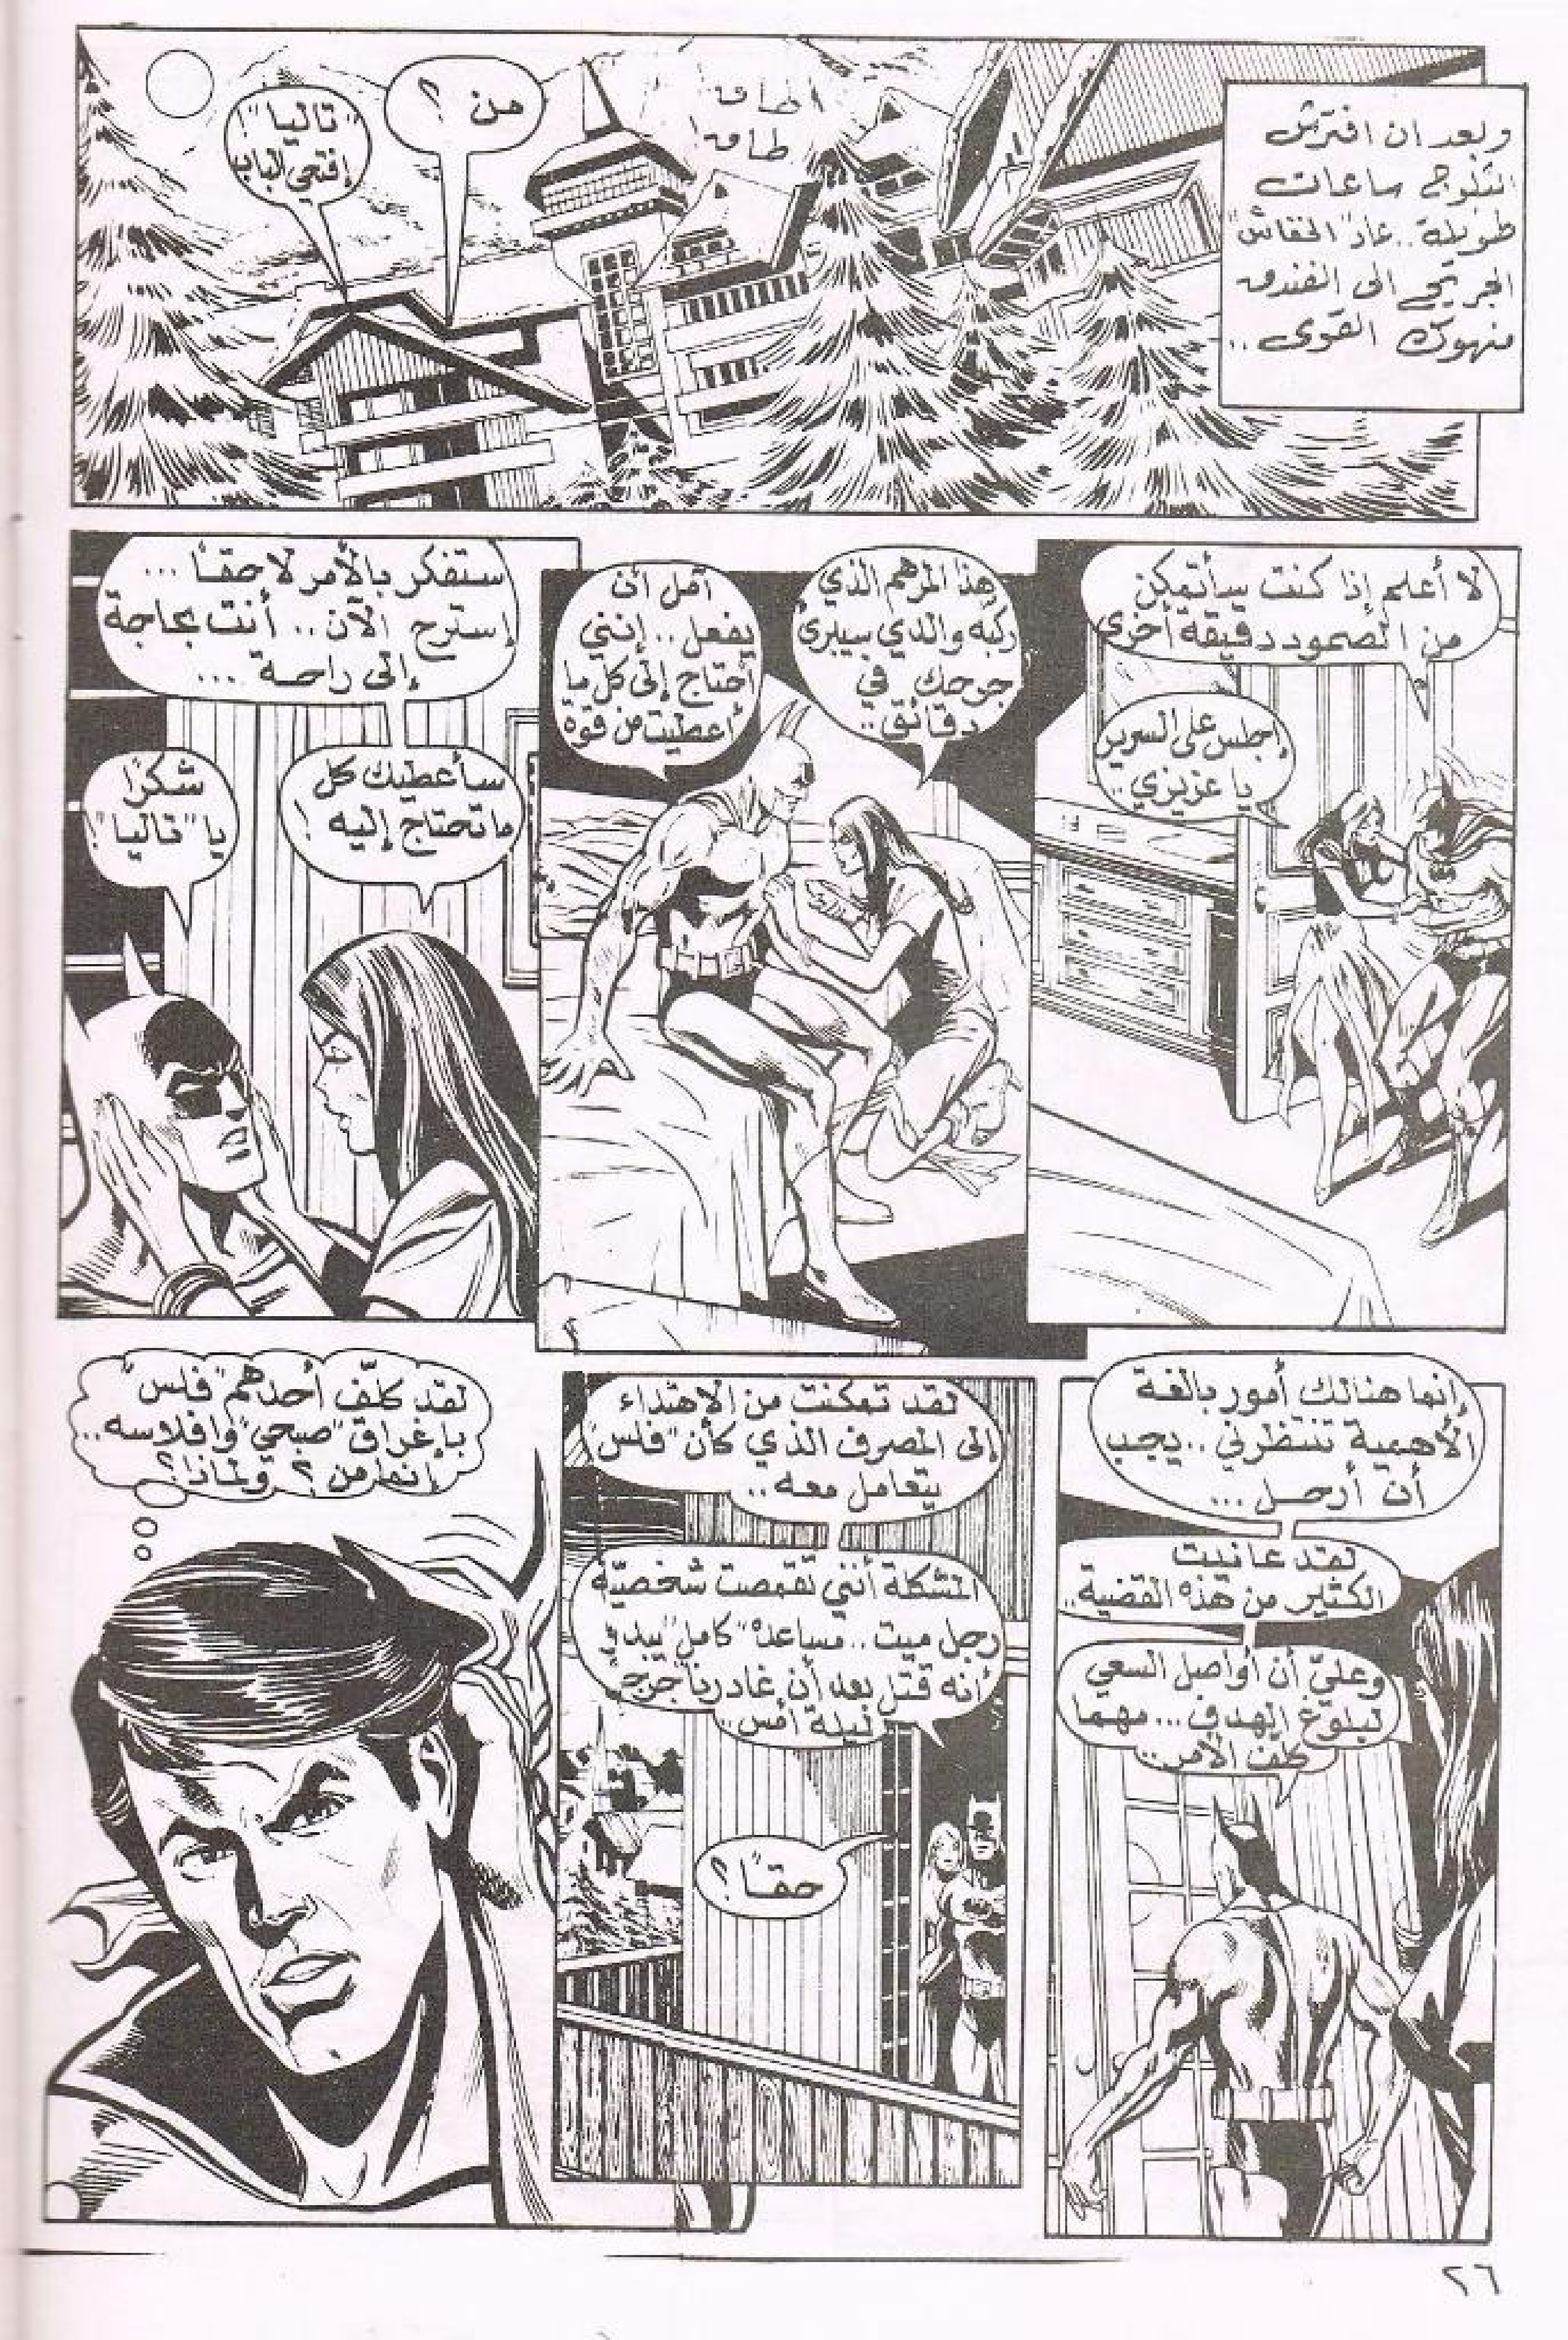 وبعد ان افترش
الثلوج ساعات
طويلة.. عاد "الخفاش"
الجريح الى الفندق
منهوك القوى..
طاق!
طاق!
من ؟
"تاليا"!
إفتحي الباب
لا أعلم إذا كنت سأتمكن
من الصمود دقيقة أخرى
إجلس على السرير
يا عزيزي..
هذا المرهم الذي
ركّبه والدي سيبرئ
جرحك في
دقائق..
آمل أن
يفعل.. إنني
أحتاج إلى كل ما
أعطيت من قوة
ستفكر بالأمر لاحقًا...
إسترح الآن.. أنت بحاجة
إلى راحة...
سأعطيك كل
ما تحتاج إليه !
شكرًا
يا "تاليا"!
إنما هنالك أمور بالغة
الأهمية تنتظرني.. يجب
أن أرحل...
لقد عانيت
الكثير من هذه القضية..
وعليّ أن أواصل السعي
لبلوغ الهدف... مهما
كلف الأمر..
لقد تمكنت من الاهتداء
إلى المصرف الذي كان "فلس"
يتعامل معه..
المشكلة أنني تقمصت شخصيّة
رجل ميت.. مساعده "كامل" يبدو
أنه قتل بعد أن غادرنا "جرجي"
ليلة أمس..
حقًا ؟
لقد كلّف أحدهم "فلس"
بإغراق "صبحي" وافلاسه..
إنما من ؟ ولماذا ؟
٢٦